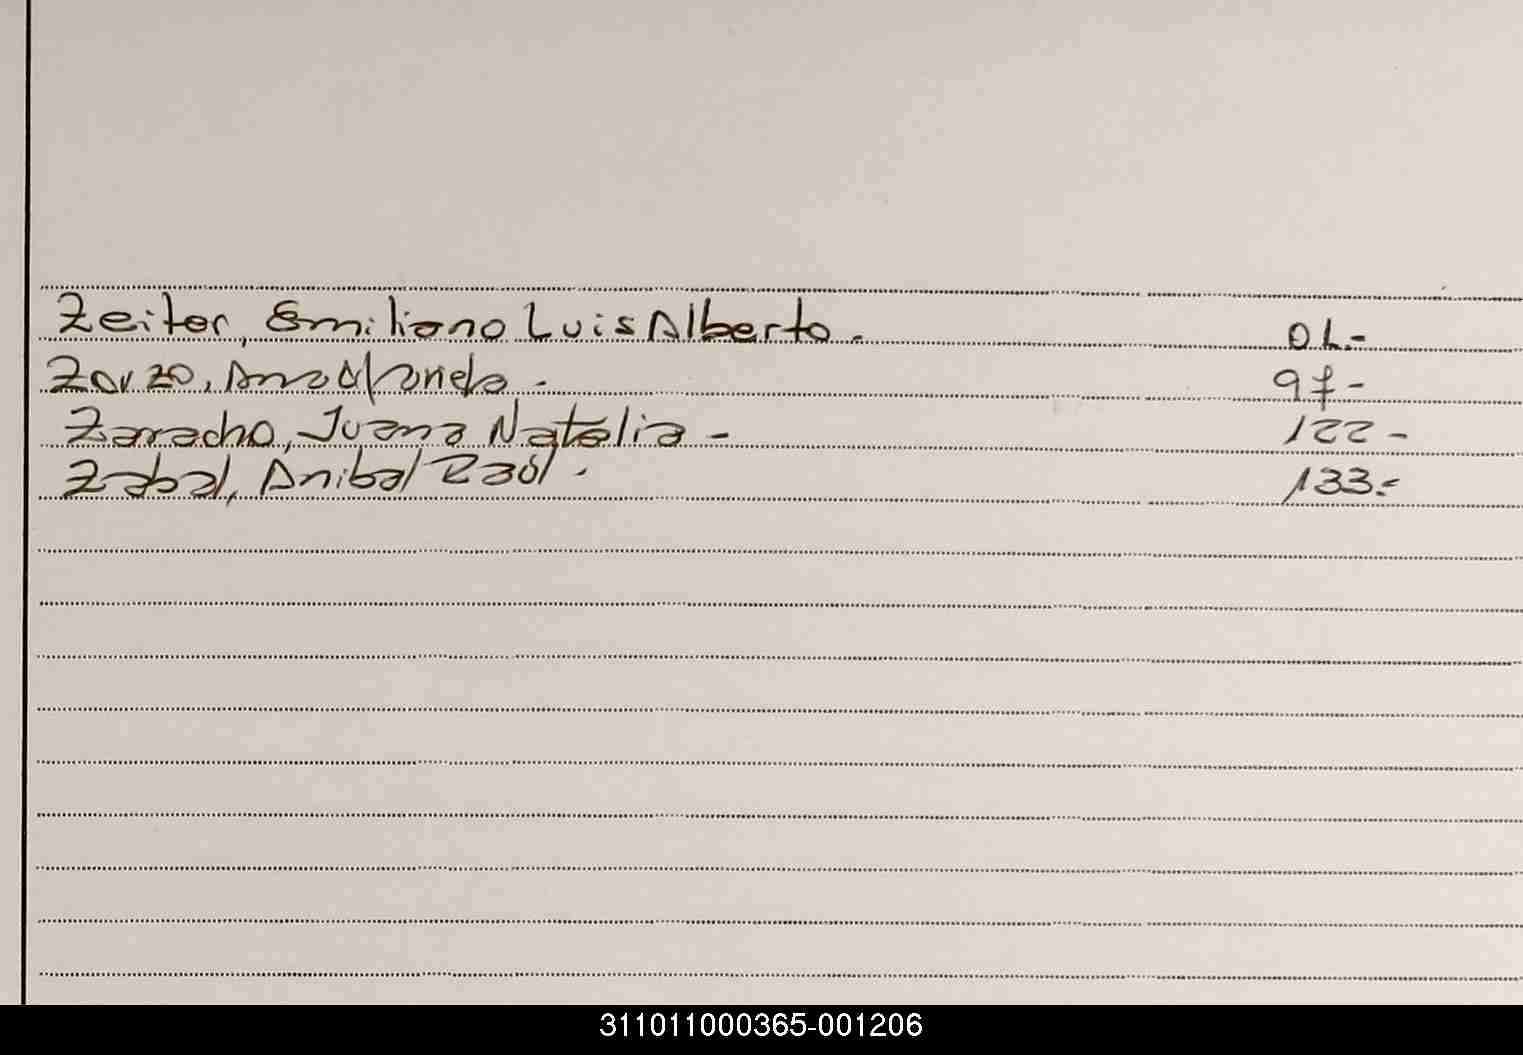 Zeiter, Emiliano Luis Alberto.- 01.-
Zarzo, Ana 97-
Zarracho, Juana Natalia - 122-
Zabal, Anibal Raúl. 133.-
311011000365-001206